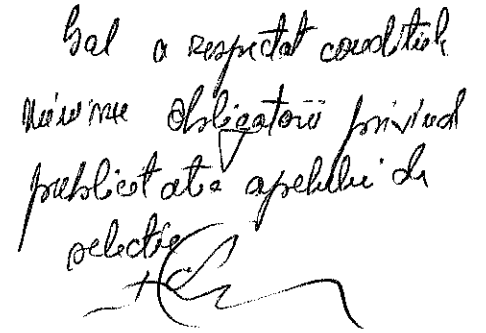 Gal a respectat condițiile
minime obligatorii privind
publicitatea apelului de
selecție